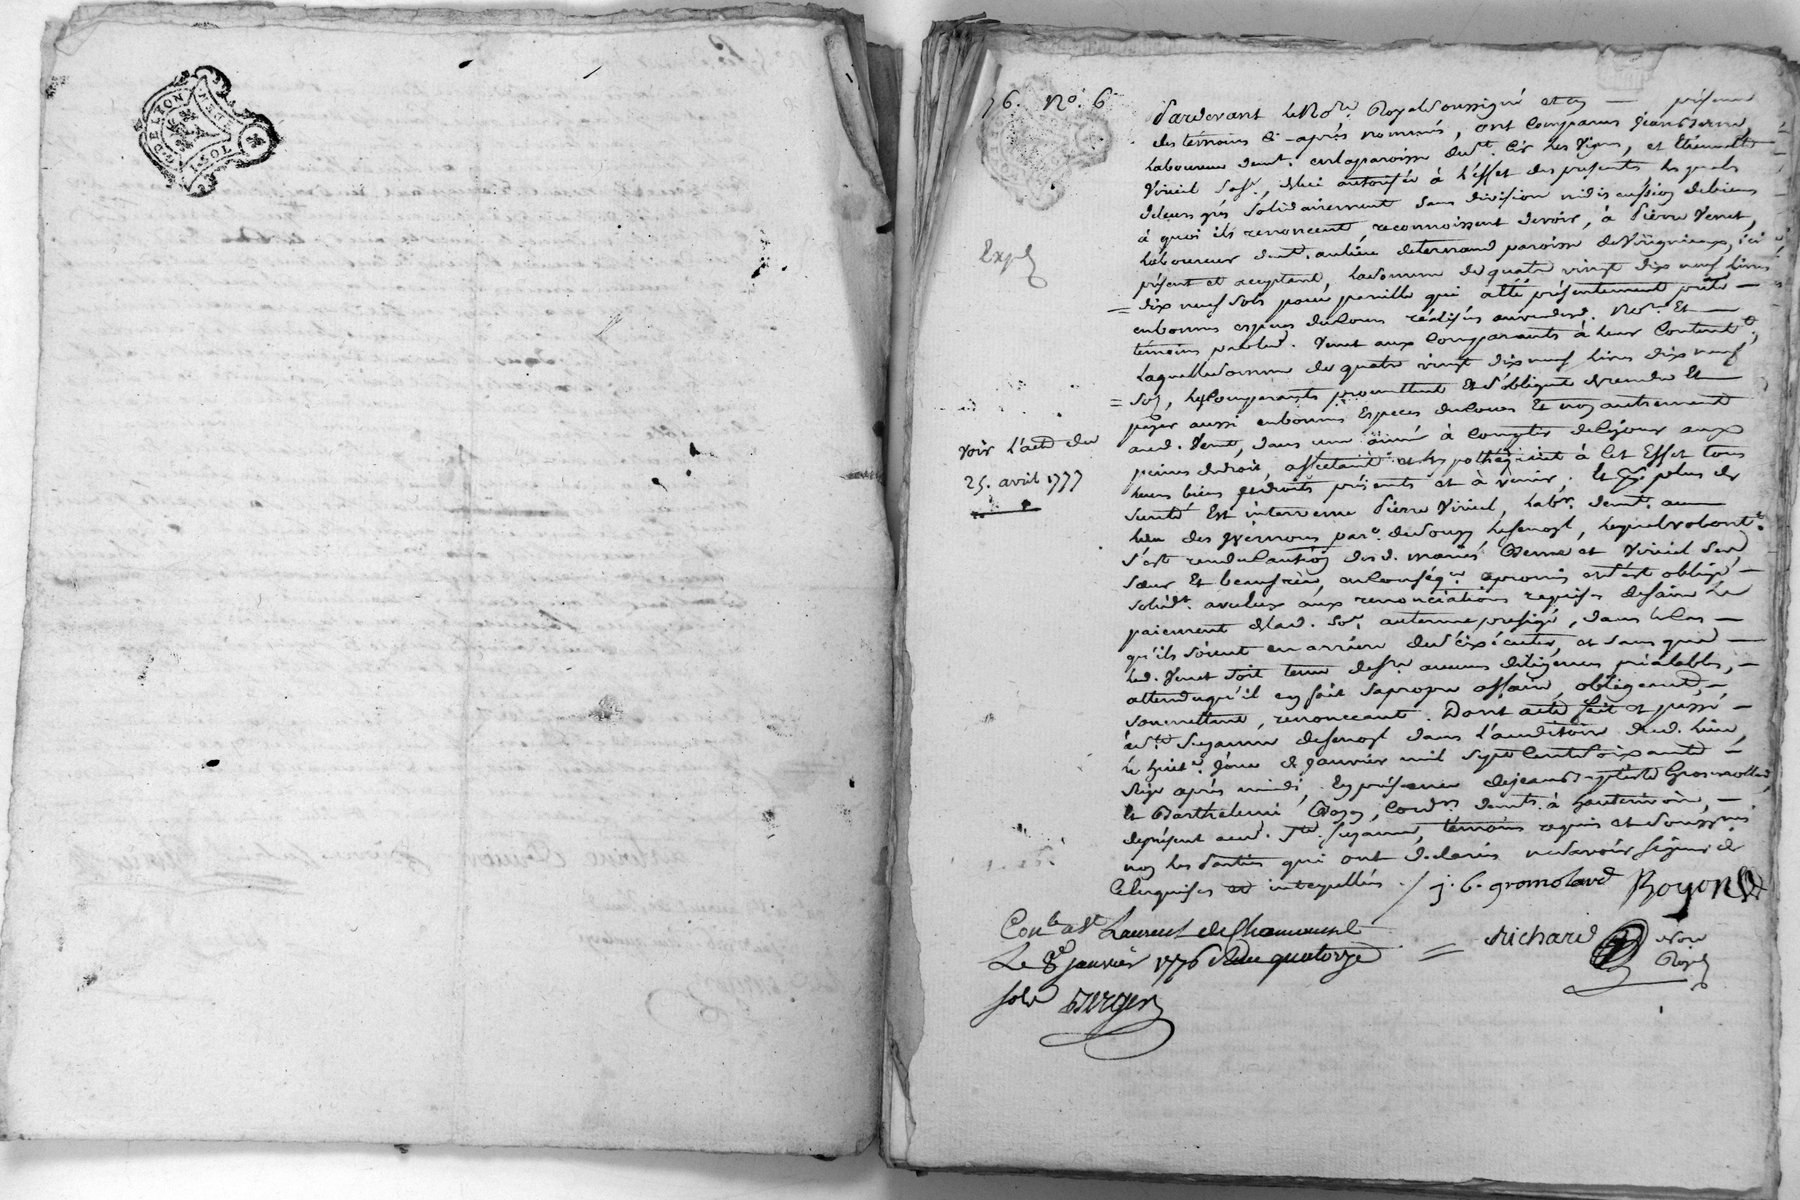 GD E LYON
1 SOL
76. No. 6
Pardevant le No.re Royal soussigné et en — présence
des témoins ci-après nommés, ont comparus Jean
laboureur demt. en la paroisse de St. Cir les Vignes, et
Viricel sa fe., de lui autorisée à l'effet des presentes, lesquels
de leurs grés solidairement sans division ni discussion de biens
à quoi ils renoncent, reconnoissent devoir, à Pierre Venet,
laboureur demt. au lieu de ternand paroisse de Virigneux, ici
présent et acceptant, la somme de quatre vingt dix neuf livres
= dix neuf sols pour pareille qui a été présentement prété —
en bonnes especes du cours réalisés au vu dud. No.re Et —
témoins par led. Venet aux comparants à leur contentt.,
laquelle somme de quatre vingt dix neuf livres dix neuf
= sols, les comparants promettent Et s'obligent de rendre Et
payer aussi en bonnes Especes du cours Et non autrement
aud. Venet, dans une année à compter de ce jour aux
peines de droit, affectants et hypothéquant à cet Effet tous
leurs biens et droits présents et à venir; Et pr. plus de
sureté Est intervenu Pierre Viricel, labr. demt. au
lieu des par.e de Souzy lequel volont.t
s'est rendu caution desd. mariés et Viricel ses
sœur Et beaufrère, en conséq.ce a promis et s'est obligé —
solidt. avec eux aux renonciations requises de faire le
paiement de lad. so.e au terme présigé, dans le cas —
qu'ils soient en arriere de s'éxécuter, et sans que —
led. Venet soit tenu de fre aucunes diligences préalables, —
attendu qu'il en fait sa propre affaire, obligeant, —
soumettant, renonceant. Dont acte fait et passé —
à Ste. Suzanne dans l'auditoire dud. lieu,
le huite. jour de Janvier mil sept cent soixante —
seize après midi, En présence de Jean Baptiste Gromollard,
Et Barthelemi Royon, cord.rs demts. à hauterivoire, —
de présent aud. Ste. Suzanne, témoins requis et soussignés
non les parties qui ont déclarés ne savoir signer de
ce Enquises et interpellées. / j. b. gromolard Royon
Expé
voir l'acte du
25. avril 1777
Con.le à St Laurent de Chamousset
Le 8e janvier 1776 Reçu quatorze =
sols Berger
Richard Nore
Royal